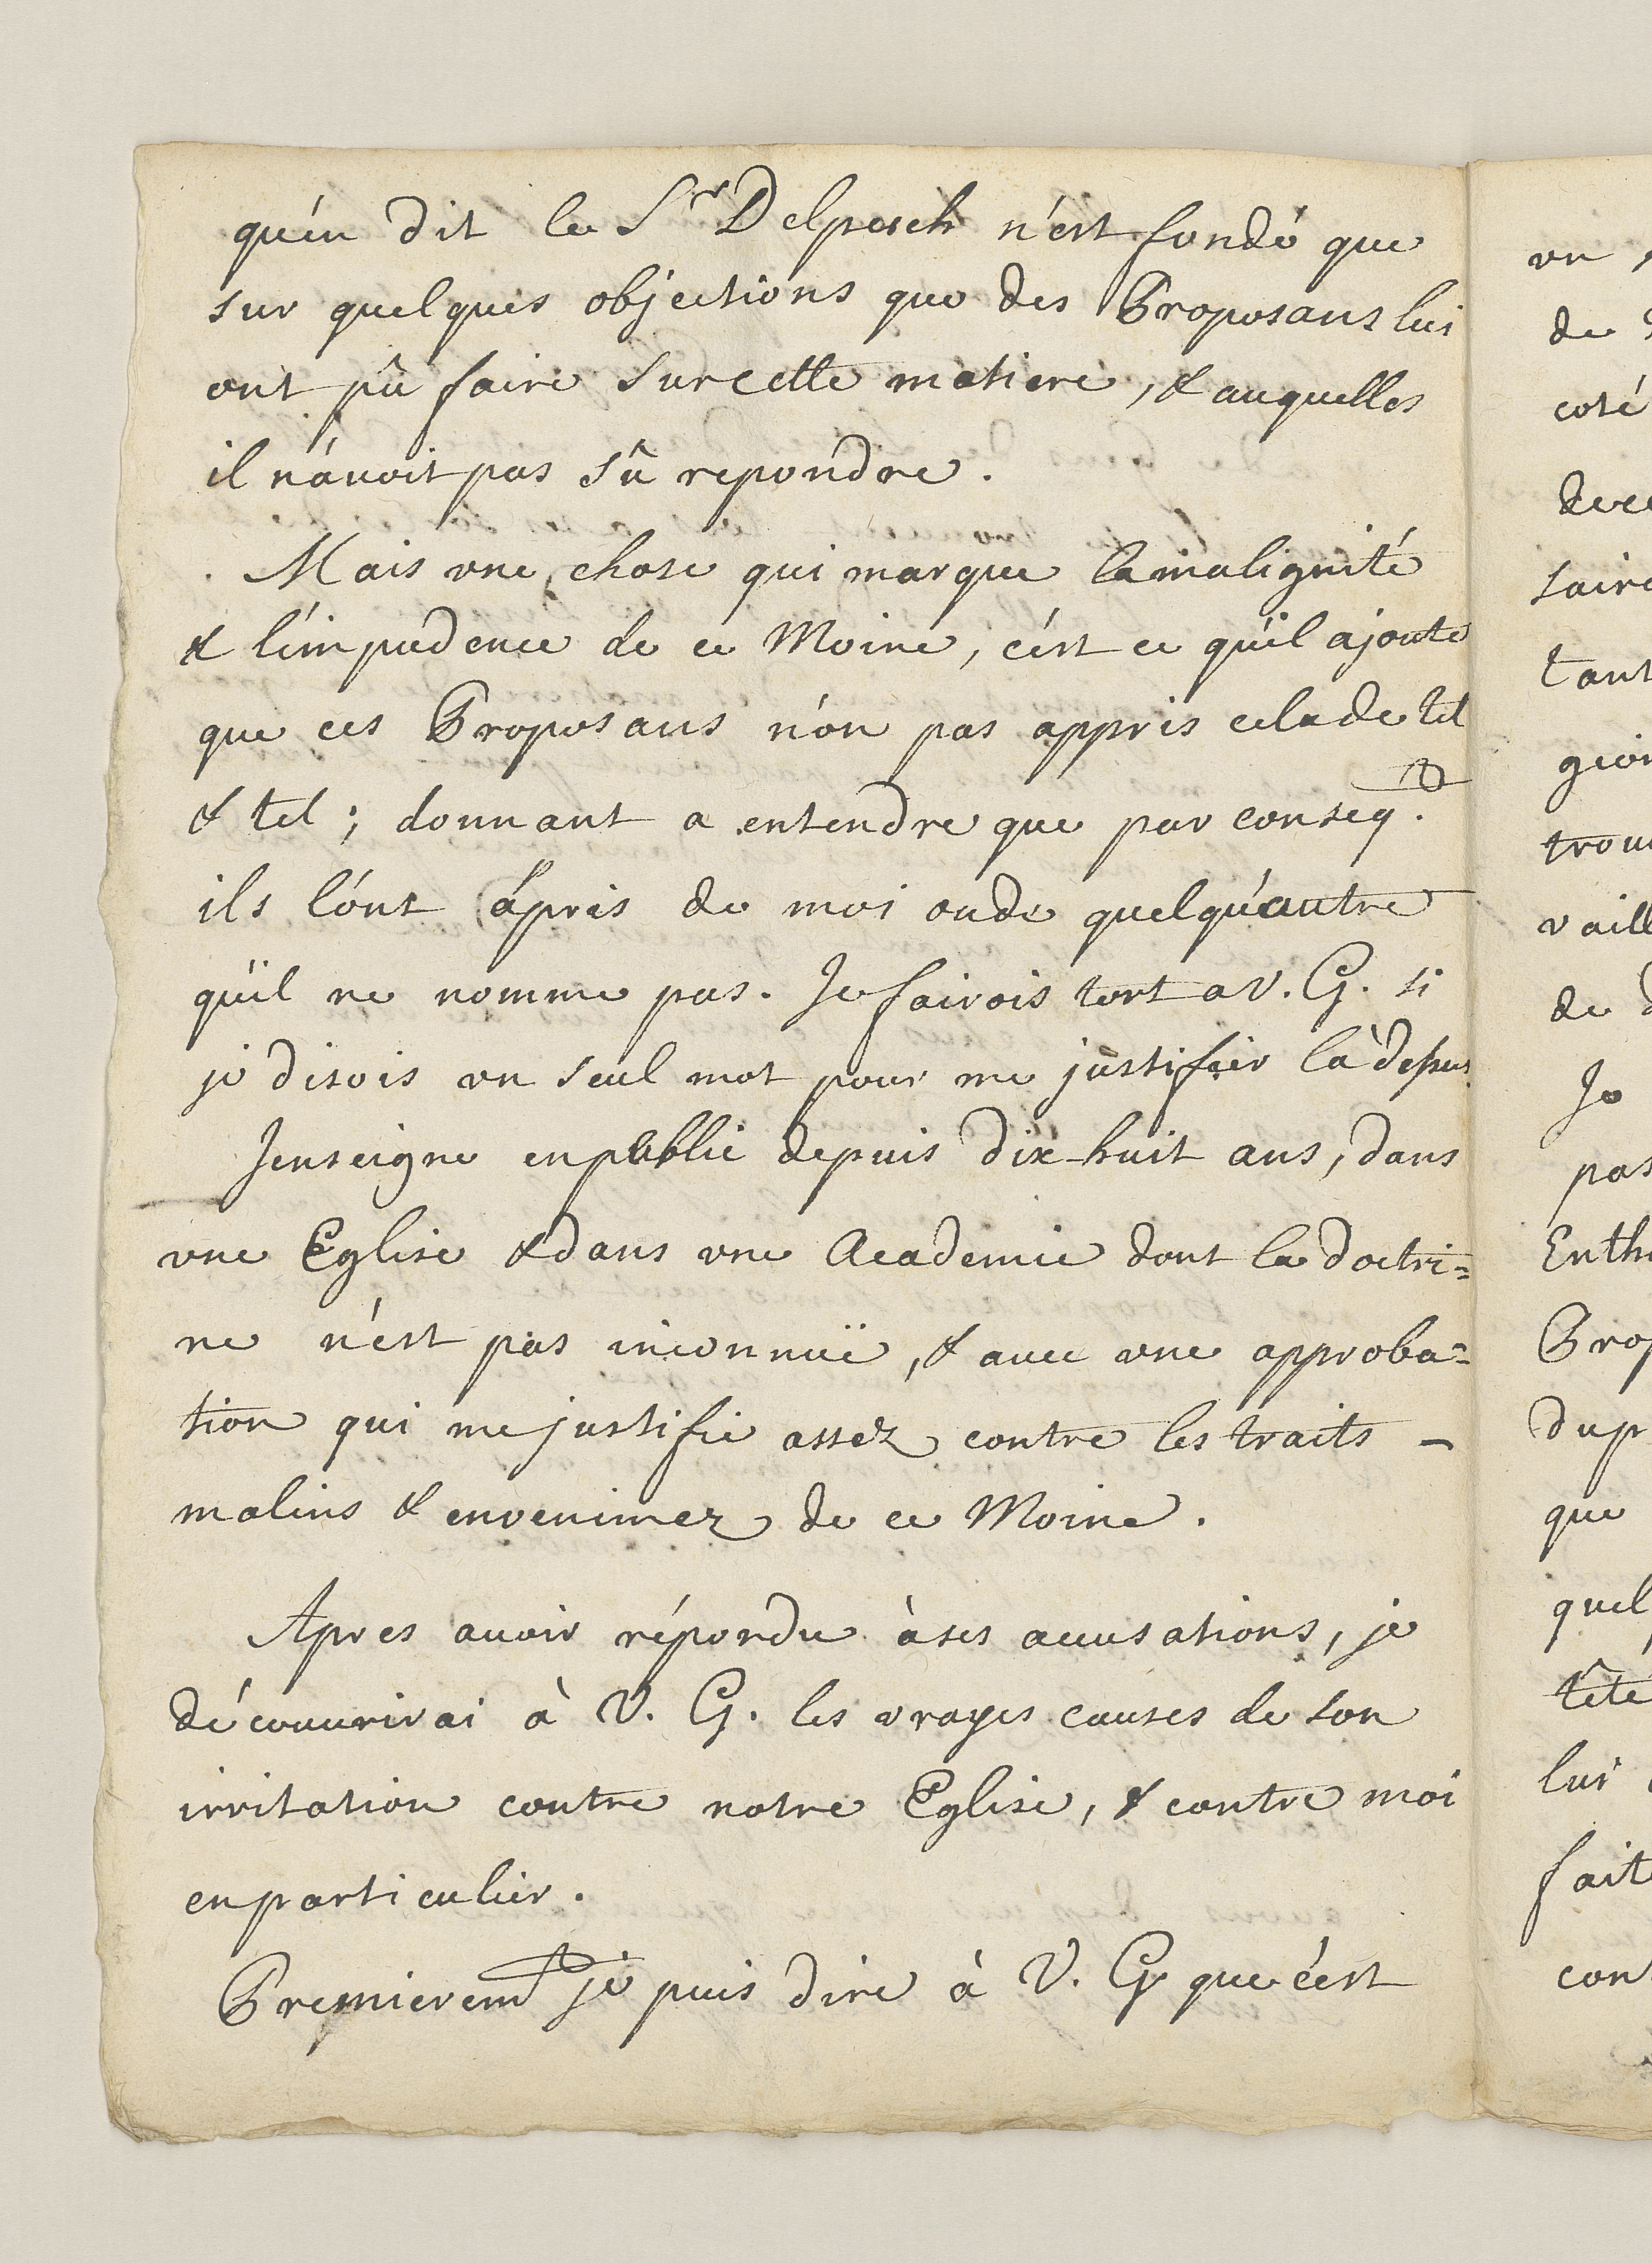 qu'en dit le Sr Delpesch n'est fondé que
sur quelques objections que des Proposans lui
ont pû faire sur cette matiere, & auquelles
il n'auoit pas sû repondre.
Mais vne chose qui marque la malignité
& l'impudence de ce Moine, c'est ce qu'il ajoute
que ces Proposans n'on pas appris cela de tel
& tel ; donnant a entendre que par conseq.t
ils l'ont apris de moi ou de quelqu'autre
qu'il ne nomme pas. Je fairois tort a V. G. si
je disois vn seul mot pour me justifier là dessus.
Jenseigne en public depuis dix-huit ans, dans
vne Eglise & dans vne Academie dont la doctri=
ne n'est pas inconnuë, & auec vne approba=
tion qui me justifie assez contre les traits -
malins & envenimez de ce Moine.
Apres auoir répondu à ses accusations, je
découurirai à V. G. les vrayes causes de son
irritation contre notre Eglise, & contre moi
en particulier.
Premieremt je puis dire à V. G. que c'est
vn
de
coté
dece
saire
tant
gion
trou
vaill
de
Je
pas
Enth
Prop
dupr
que
quel
tête
lui
fait
con